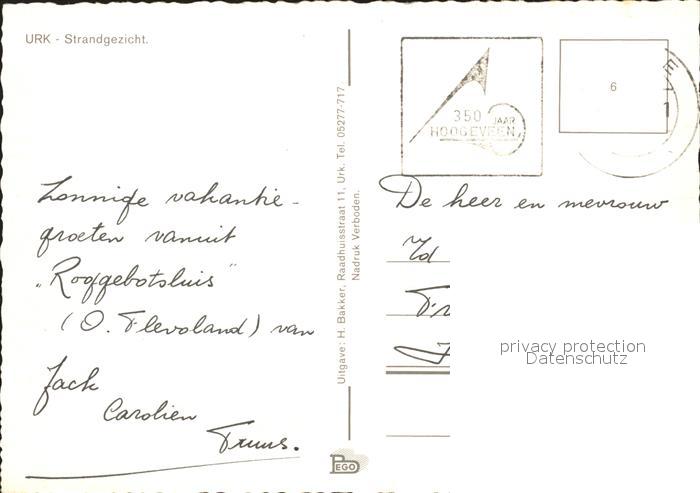 URK - Strandgezicht.
Zonnige vakantie-
groeten vanuit
"Roggebotsluis"
(O. Flevoland) van
Jack
Carolien
Truus.
Uitgave: H. Bakker, Raadhuisstraat 11, Urk. Tel. 05277-717
Nadruk Verboden.
PEGO
350 JAAR
HOOGEVEEN
6
De heer en mevrouw
privacy protection
Datenschutz